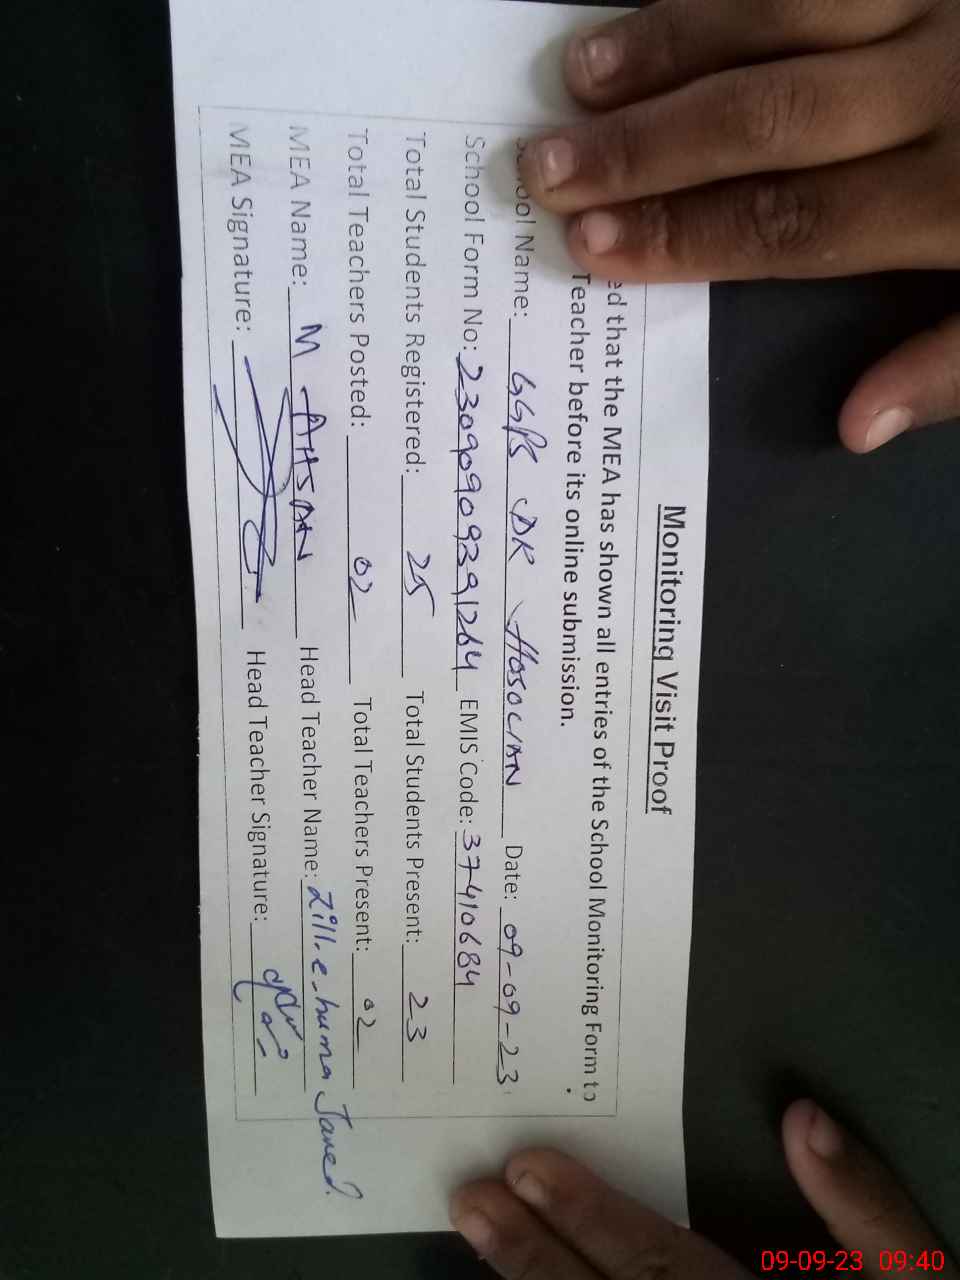 Monitoring Visit Proof
ed that the MEA has shown all entries of the School Monitoring Form to
Teacher before its online submission.
School Name: GGPS DK HOSOLIAN Date: 09-09-23
School Form No: 23090909391264 EMIS Code: 37410684
Total Students Registered: 25 Total Students Present: 23
Total Teachers Posted: 02 Total Teachers Present: 02
MEA Name: M AHSAN Head Teacher Name: Zill.e.huma Javed.
MEA Signature: Head Teacher Signature:
09-09-23 09:40